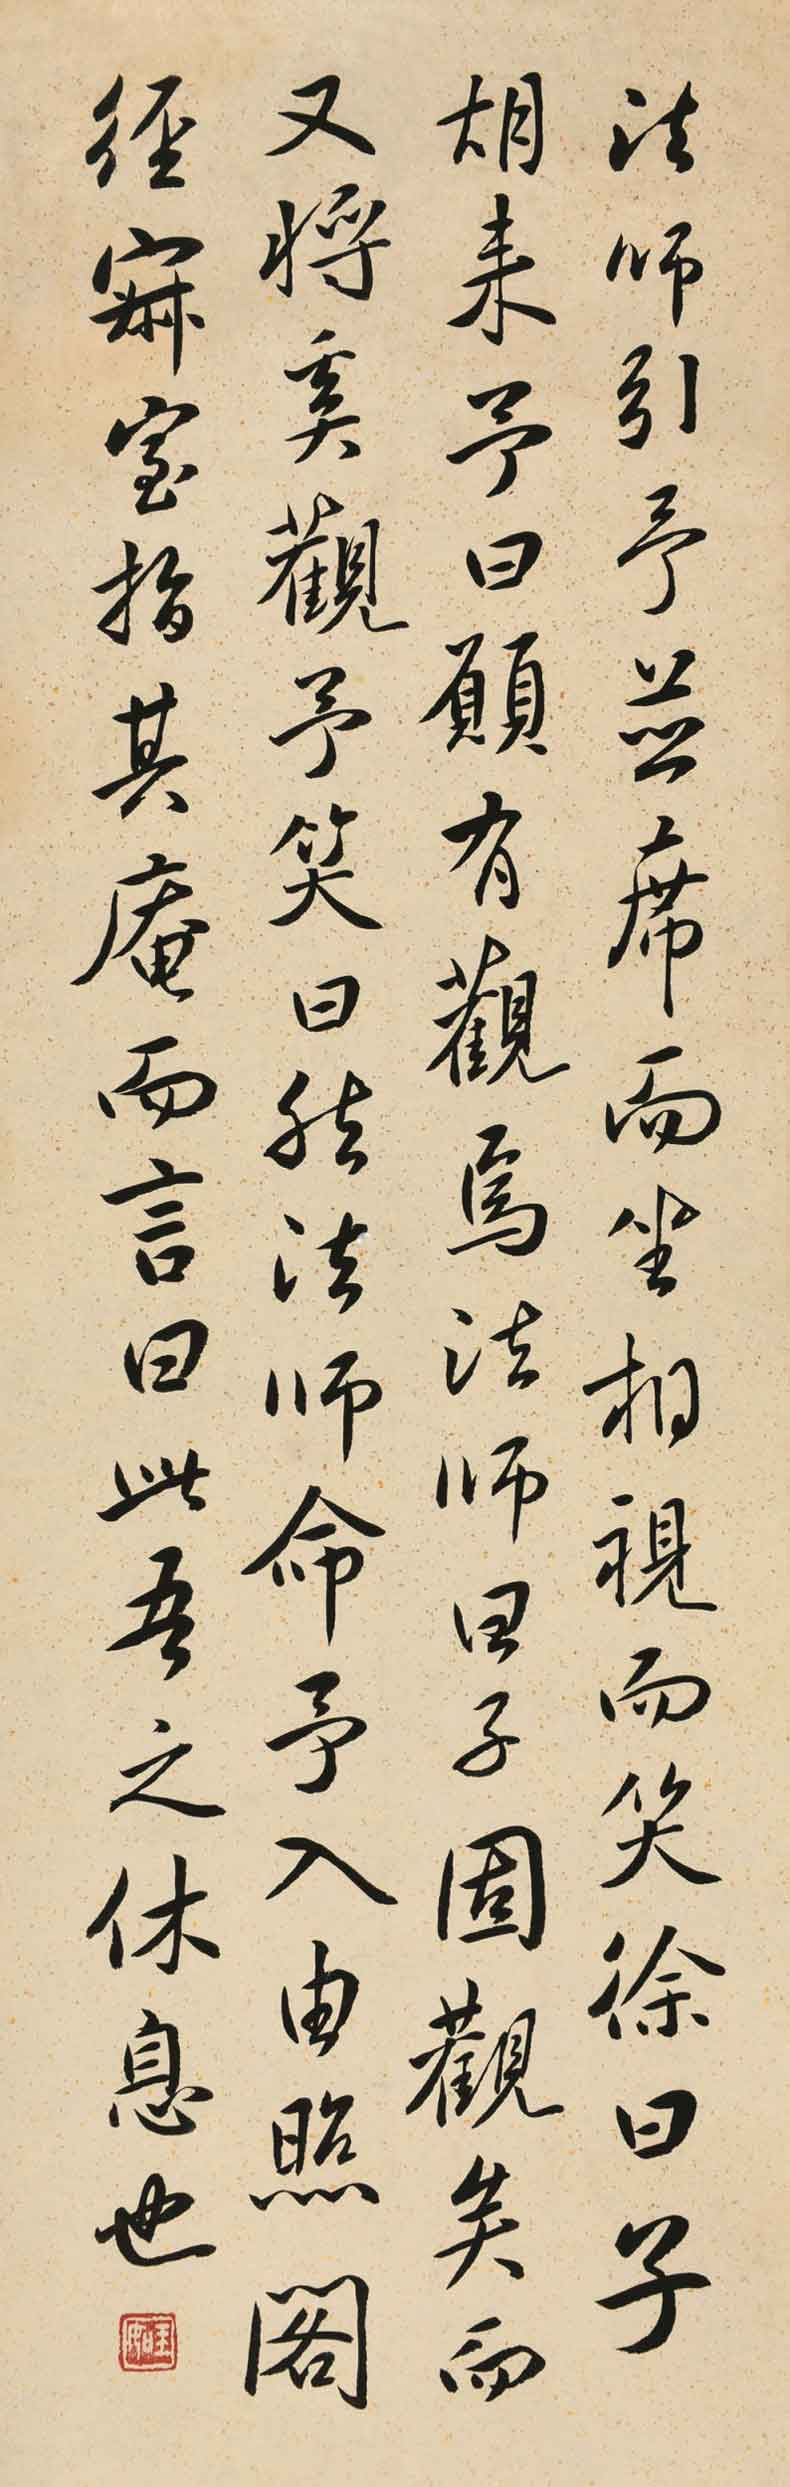 法師引予並席而坐相視而笑徐曰子
胡来予曰願有觀焉法師曰子固觀矣而
又將奚觀予笑曰然法師命予入由照閣
徑寐室指其庵而言曰此吾之休息也